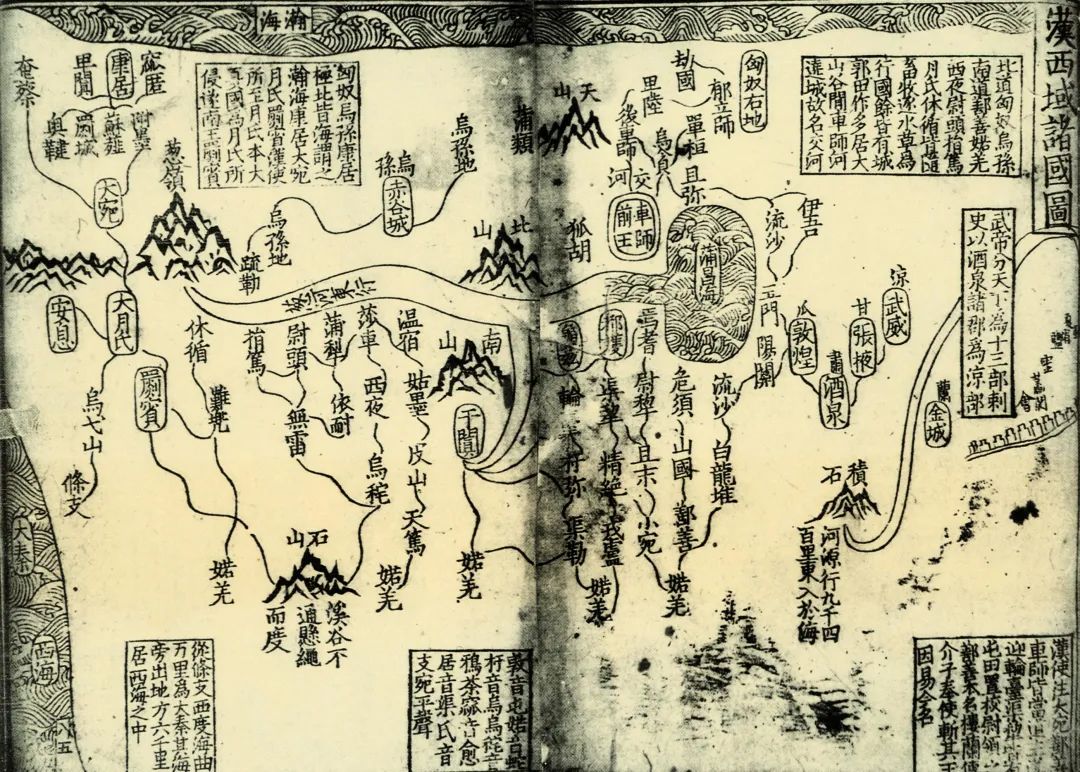 漢西域諸國圖
瀚海
北道匈奴烏孫
南道鄯善婼羌
西夜尉頭捐篤
月氏休循皆隨
畜牧逐水草為
行國餘皆有城
郭田作多居大
山谷間車師河
遶城故名交河
匈奴右地
劫國
郁立師
卑陸
單桓
後車師
烏貪
且弥
天山
蒲類
交河
車師前王
狐胡
蒲昌海
伊吾
流沙
玉門
陽關
瓜
敦煌
肅
酒泉
甘
張掖
涼
武威
蘭
金城
武帝分天下為十三部刺
史以酒泉諸郡為涼部
積石
河源行九千四
百里東入於海
匈奴烏孫康居
極北皆海謂之
瀚海康居大宛
月氏罽賔漢使
所至月氏本大
夏國為月氏所
侵遂南王罽賔
烏孫地
烏孫
赤谷城
烏孫地
疏勒
北山
葱嶺
奄蔡
康居
罽城
蘇䪥
附墨
奧鞬
大宛
大月氏
安息
罽賔
烏弋山
條支
休循
難兜
婼羌
捐篤
尉頭
無雷
蒲犁
依耐
莎車
西夜
烏秅
温宿
姑墨
皮山
天篤
婼羌
南山
于闐
婼羌
輪
扜弥
渠勒
婼羌
渠犂
精絶
戎盧
焉耆
尉犂
且末
小宛
婼羌
危須
山國
鄯善
流沙
白龍堆
石山
溪谷不
通懸繩
而度
大秦
西海
從條支西度海曲
万里為大秦其海
旁出地方六千里
居西海之中
敦音屯婼音蛇
居音渠氏音
支宛平聲
屯田置校尉領
鄯善本名樓蘭
介子奉使斬其王
因易今名